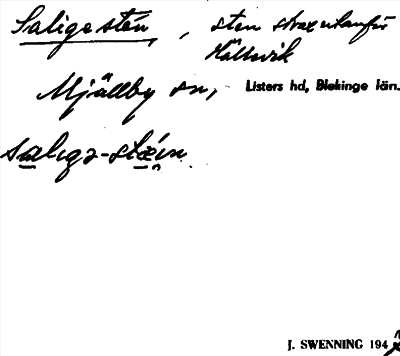 Saligastén, sten strax utanför
Hällevik
Mjällby sn, Listers hd, Blekinge län.
saligə-stæin
J. SWENNING 194